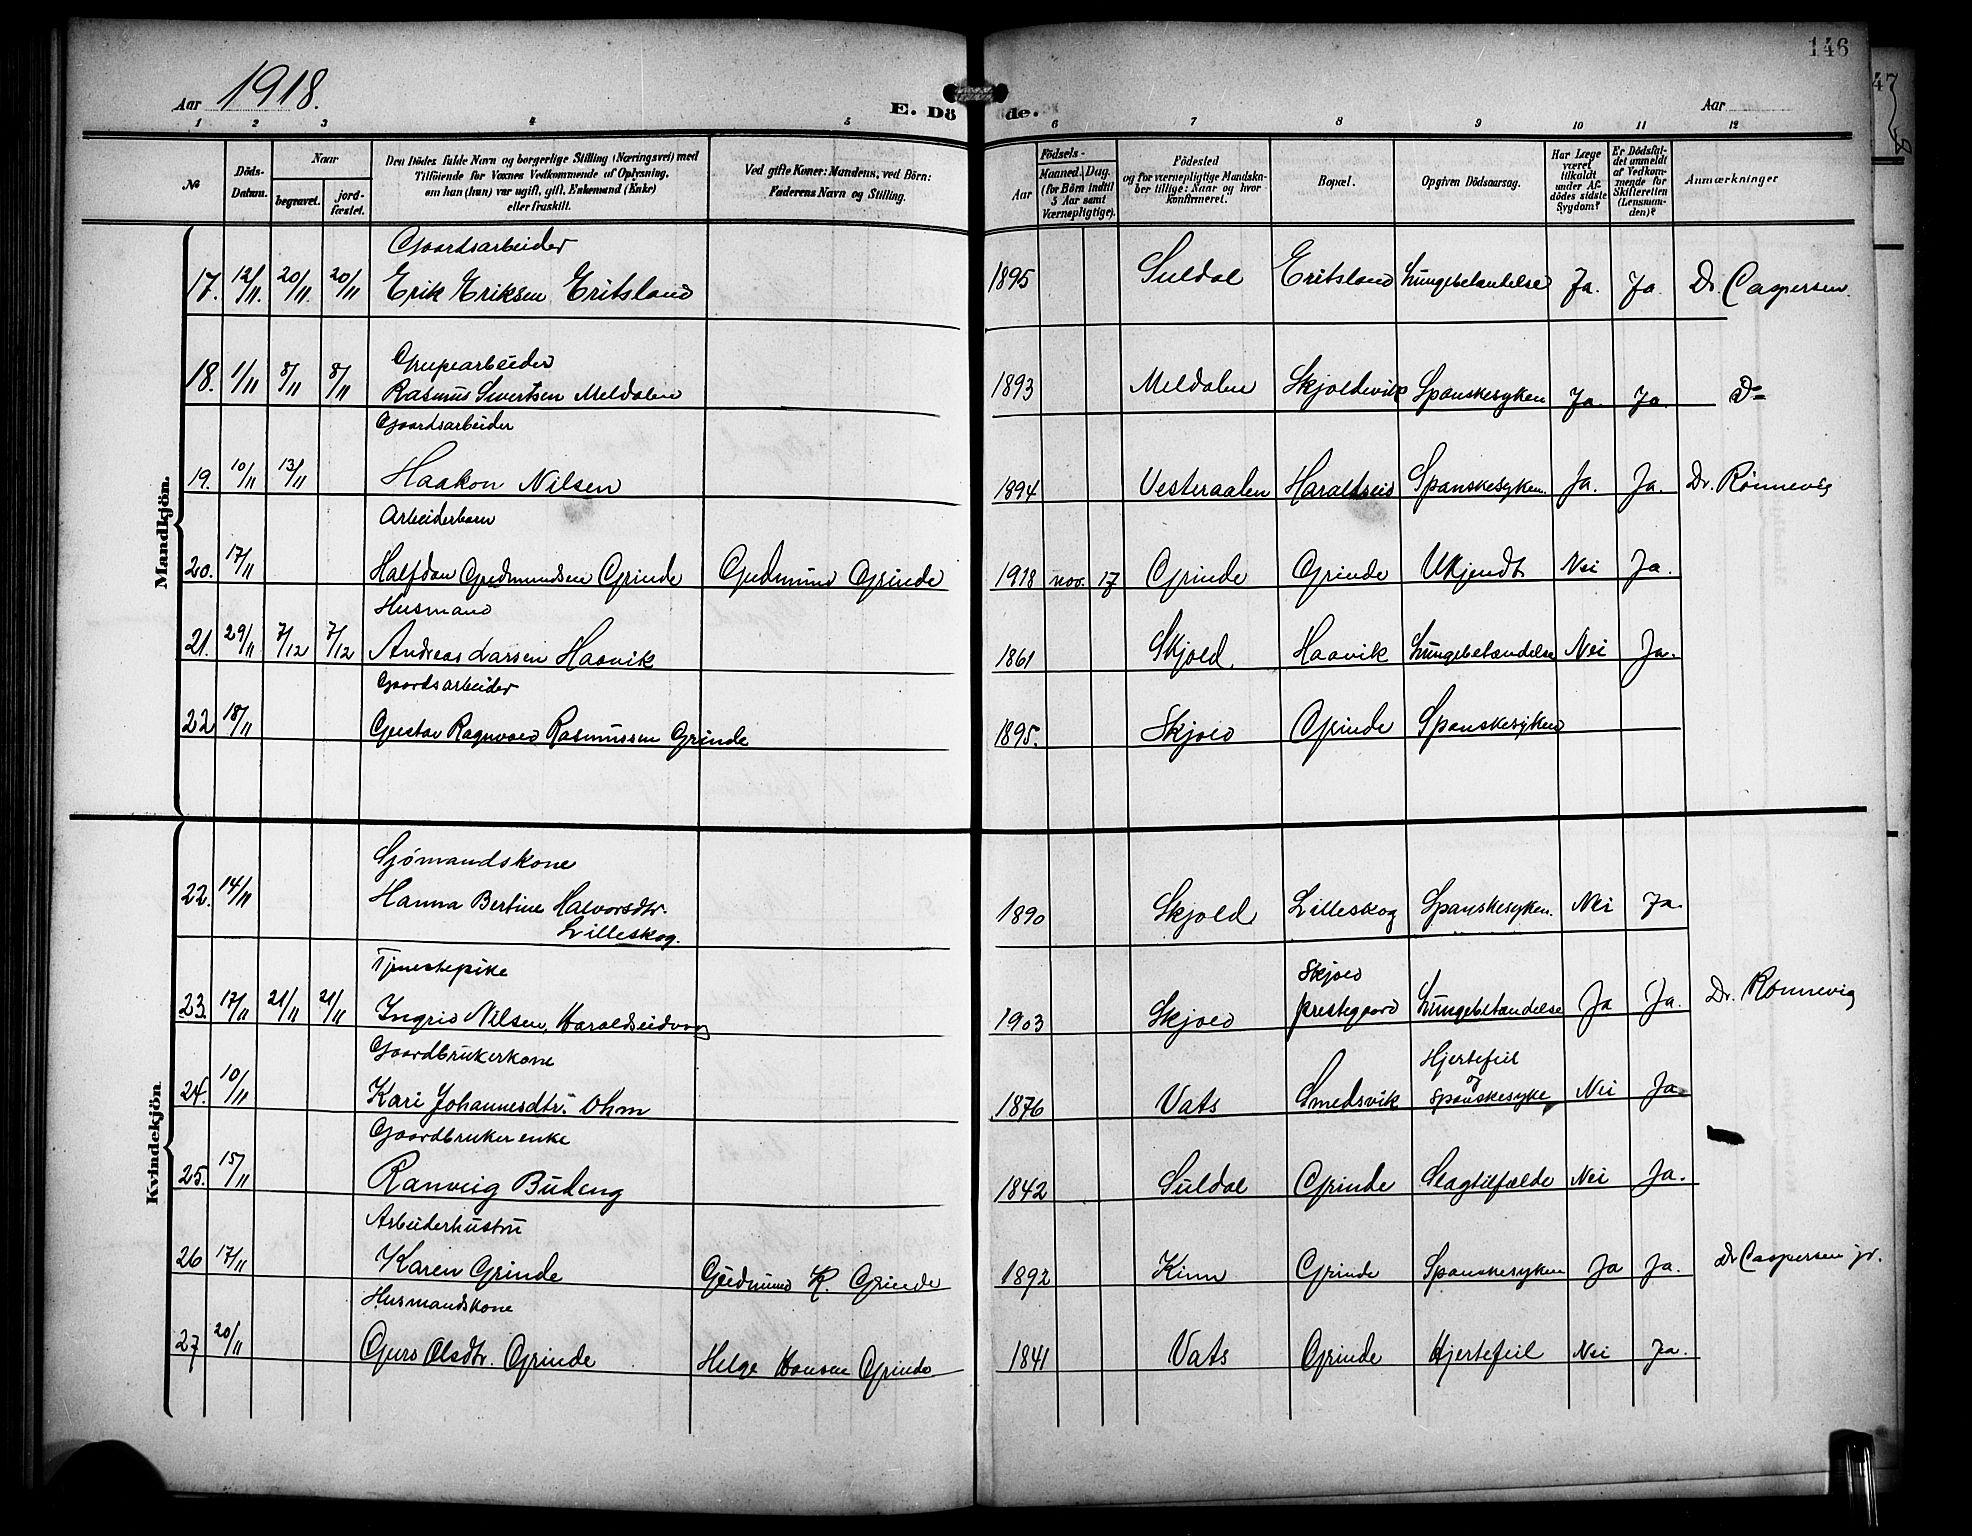 146
47
Aar 1918.
E. Dö de.
Aar
1 2 3 4 5 6 7 8 9 10 11 12
№
Döds-Datum.
Naar
begravet.
jord-fæstet.
Den Dödes fulde Navn og borgerlige Stilling (Næringsvei) med
Tilföiende for Voxnes Vedkommende af Oplysning,
om han (hun) var ugift, gift, Enkemand (Enke)
eller fraskilt.
Ved gifte Koner: Mandens, ved Börn:
Faderens Navn og Stilling.
Födsels-
Aar
Maaned. Dag.
(for Börn indtil
5 Aar samt
Værnepligtige).
Födested
og for værnepligtige Mandskaber
tillige: Naar og hvor
konfirmeret.
Bopæl.
Opgiven Dödsaarsag.
Har Læge
været
tilkaldt
under Afdödes
sidste
Sygdom?
Er Dödsfaldet
anmeldt
af Vedkommende
for
Skifteretten
(Lensmanden)?
Anmærkninger
Mandkjön.
Gaardsarbeider
17. 12/11. 20/11. 20/11 Erik Eriksen Eritsland 1895 Suldal Eritsland Lungebetændelse Ja. Ja. Dr. Caspersen.
Grupearbeider
18. 1/11 8/11 8/11 Rasmus Sivertsen Meldalen 1893 Meldalen Skjoldevik Spanskesyken Ja. Ja. Do
Gaardsarbeider
19. 10/11 13/11 Haakon Nilsen 1894 Vesteraalen Haraldseid Spanskesyken. Ja. Ja. Dr. Rönnevig
Arbeiderbarn
20. 17/11 Halfdan Gudmundsen Grinde Gudmund Grinde 1918 nov. 17 Grinde Grinde Ukjendt Nei Ja.
Husmand
21. 29/11 7/12 7/12 Andreas Larsen Haavik 1861 Skjold. Haavik Lungebetændelse Nei Ja.
Gaardsarbeider
22 18/11 Gustav Ragnvald Rasmussen Grinde 1895. Skjold Grinde Spanskesyken
Kvindekjön
Sjömandskone
22. 14/11 Hanna Bertine Halvorsdtr. 1890 Skjold Lilleskog Spanskesyken. Nei Ja.
Lilleskog.
Tjenestepike Skjold
23. 17/11 21/11 21/11 Ingrid Nilsen, Haraldseidvaag 1903 Skjold prestegaard Lungebetændelse Ja Ja. Dr. Rönnevig
Gaardbrukerkone Hjertefeil
og
24. 10/11 Kari Johannesdtr. Ohm 1876 Vats Smedsvik spanskesyke Nei Ja.
Gaardbruker enke
25. 15/11 Ranveig Budeng 1842 Suldal Grinde Slagtilfælde Nei Ja.
Arbeiderhustru
26 17/11 Karen Grinde Gudmund K. Grinde 1892 Kinn Grinde Spanskesyken Ja Ja. Dr Caspersen jr.
Husmandskone
27 20/11 Guro Olsdtr. Grinde Helge Hansen Grinde 1841 Vats Grinde Hjertefeil Nei Ja.